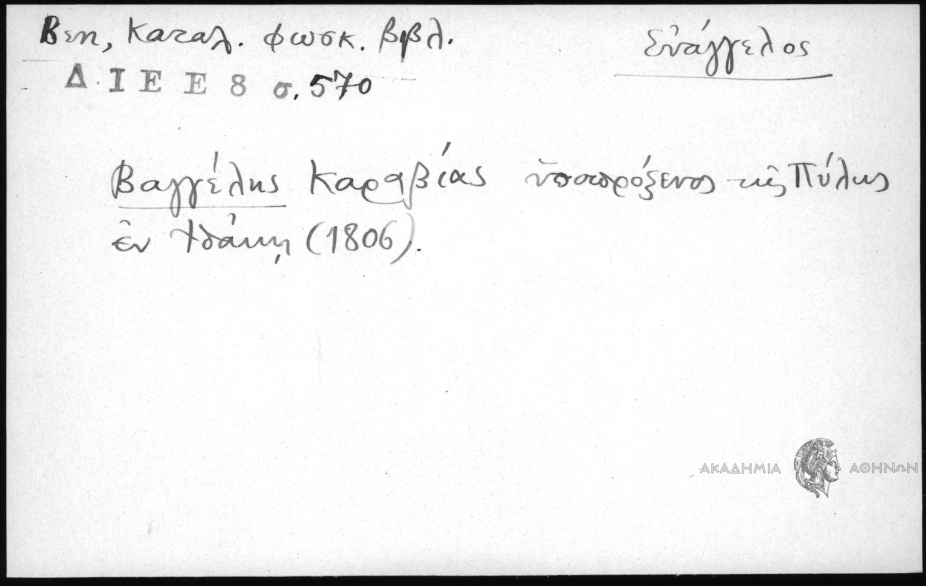 Βεη, Καταλ. φωσκ. βιβλ.
Εὐάγγελος
Δ. Ι Ε Ε 8 σ. 570
Βαγγέλης Καραβίας ὑποπρόξενος τῆς Πύλης
ἐν Ἰθάκῃ (1806).
ΑΚΑΔΗΜΙΑ ΑΘΗΝΩΝ